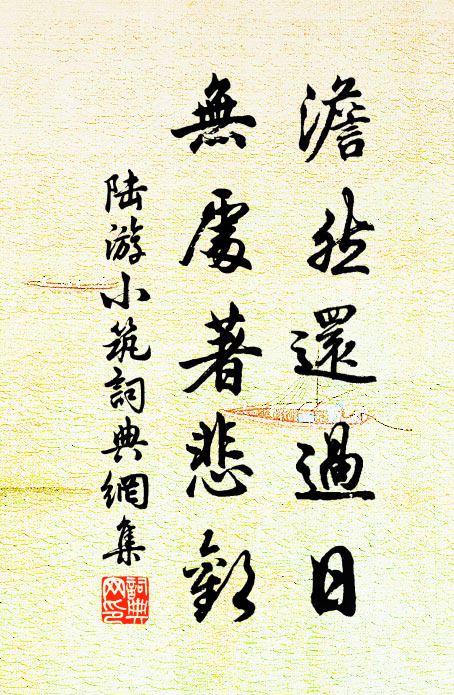 澹然還過日
無處著悲歡
陆游小筑詞典網集
詞典
网印